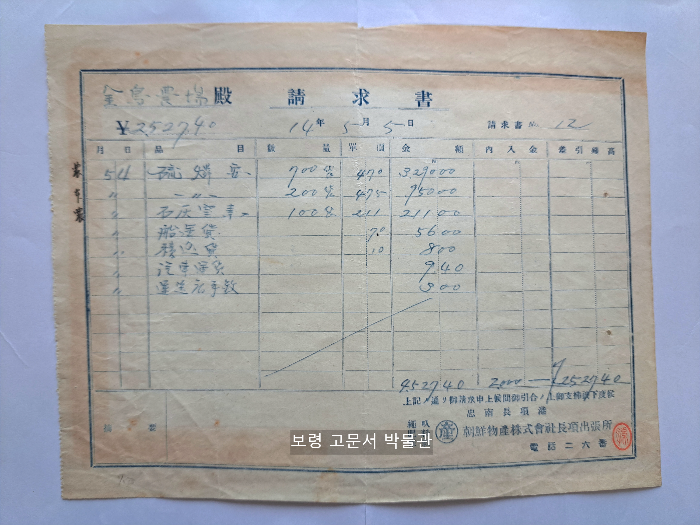 金島農場殿 請求書
¥252740 14年5月5日 請求書№ 12
月 日 品目 数量 單價 金額 內入金 差引殘高
5 4 硫燐安 700 470 329000
〃 〃 200 475 95000
〃 石灰窒素 100 211 21100
〃 船運賃 70 5600
〃 10 800
〃 汽車運賃 940
〃 運送店手数 300
452740 2000 ¥252740
上記ノ通リ御請求申上候間御引合ノ上御支拂被下度候
忠南長項港
産 朝鮮物產株式會社長項出張所
電話二六番
摘要
보령 고문서 박물관